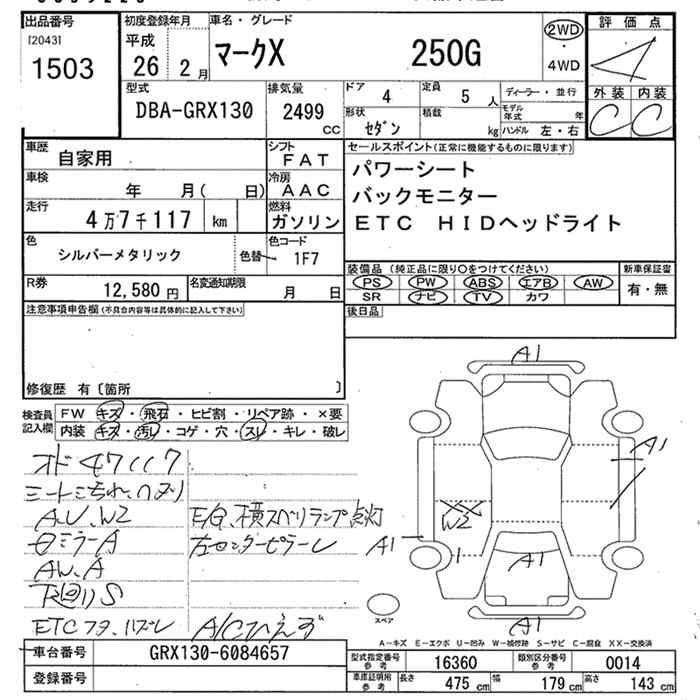 出品番号
[2043]
1503
初度登録年月
平成
26 2月
車名・グレード
マークX 250G
2WD
4WD
評価点
4
外装 内装
C C
型式
DBA-GRX130
排気量
2499
CC
ドア
4
定員
5 人
形状
セダン
積載
kg
ディーラー・並行
モデル年式 年
ハンドル 左・右
車歴
自家用
シフト
FAT
車検
年 月( 日)
冷房
AAC
走行
4万7千117 km
燃料
ガソリン
色
シルバーメタリック
色替
色コード
1F7
R券
12,580円
名変通知期限
月 日
セールスポイント(正常に機能するものに限ります)
パワーシート
バックモニター
ETC HIDヘッドライト
装備品(純正品に限り○をつけてください)
PS PW ABS エアB AW
SR ナビ TV カワ
新車保証書
有・無
後日品
注意事項申告欄(不具合内容等は具体的に記入して下さい)
修復歴 有〔箇所 〕
検査員記入欄
FW キズ・飛石・ヒビ割・リペア跡・×要
内装 キズ・汚レ・コゲ・穴・スレ・キレ・破レ
オド 47117
A.U、W2
E/G、横スベリランプ点灯
ミラーA
左センターピラーレ
AW、A
下廻リS
ETCフタ、ハズレ
A/Cひえず
A1
A1
XX
W2
A1
A1
A1
スペア
A-キズ E-エクボ U-凹み W-補修跡 S-サビ C-腐食 XX-交換済
車台番号
GRX130-6084657
登録番号
型式指定番号
参考
16360
類別区分番号
参考
0014
車庫証明用
参考
長さ
475 cm
幅
179 cm
高さ
143 cm